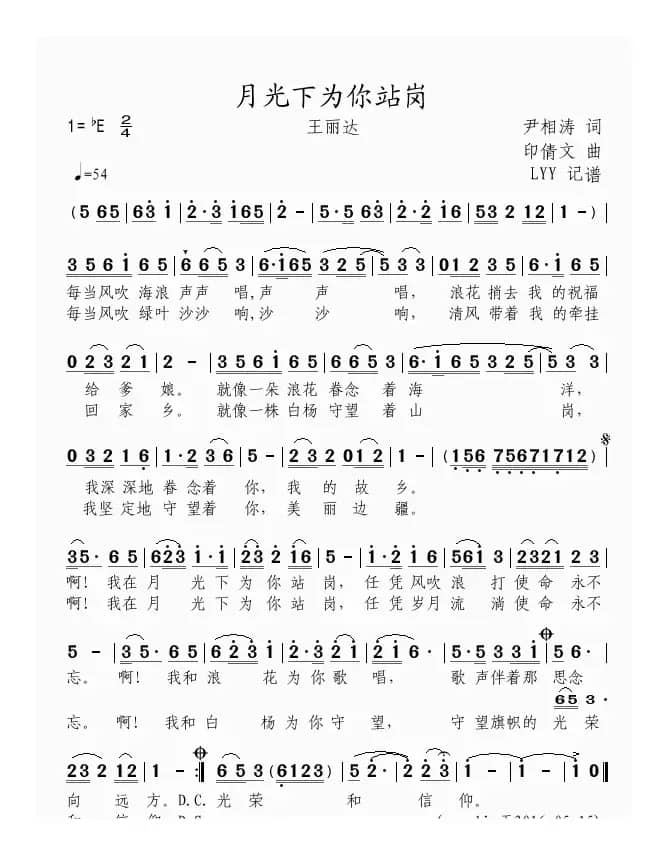 月光下为你站岗
1=♭E 2/4
王丽达
尹相涛 词
印倩文 曲
♩=54
LYY 记谱
(5 65|63 1|2·3 165|2 -|5·5 63|2·2 16|53 2 12|1 -)|
3 5 6 1 6 5|6 6 5 3|6·165 3 2 5|5 3 3|01 2 3 5|6·1 6 5|
每当风吹 海浪 声声 唱,声 声 唱, 浪花 捎去 我 的 祝福
每当风吹 绿叶 沙沙 响,沙 沙 响, 清风 带着 我 的 牵挂
0 2 3 2 1|2 -|3 5 6 1 6 5|6 6 5 3|6·1 6 5 3 2 5|5 3 3|
给 爹 娘。 就像一朵 浪花 眷念 着 海 洋,
回 家 乡。 就像一株 白杨 守望 着 山 岗,
0 3 2 1 6|1·2 3 6|5 -|2 3 2 01 2|1 -|(156 75671712)|
我深 深地 眷 念着 你, 我 的 故 乡。
我坚 定地 守 望着 你, 美 丽 边 疆。
35· 6 5|623 1·1|23 2 16|5 -|1·2 1 6|561 3|2321 2 3|
啊! 我在 月 光 下 为 你 站 岗, 任 凭 风吹 浪 打 使 命 永不
啊! 我在 月 光 下 为 你 站 岗, 任 凭 岁月 流 淌 使 命 永不
5 -|3 5· 6 5|6 2 3 1|2·3 2 1 6|2 1 6|5·5 3 3 1|5 6·|
忘。 啊! 我和 浪 花 为 你 歌 唱, 歌 声伴着 那 思念
65 3·
忘。 啊! 我和 白 杨 为 你 守 望, 守 望旗帜的 光 荣
23 2 12|1 -:|6 5 3 (6123)|5 2·|2 2 3|1 -|1 10‖
向 远 方。D.C. 光 荣 和 信 仰。